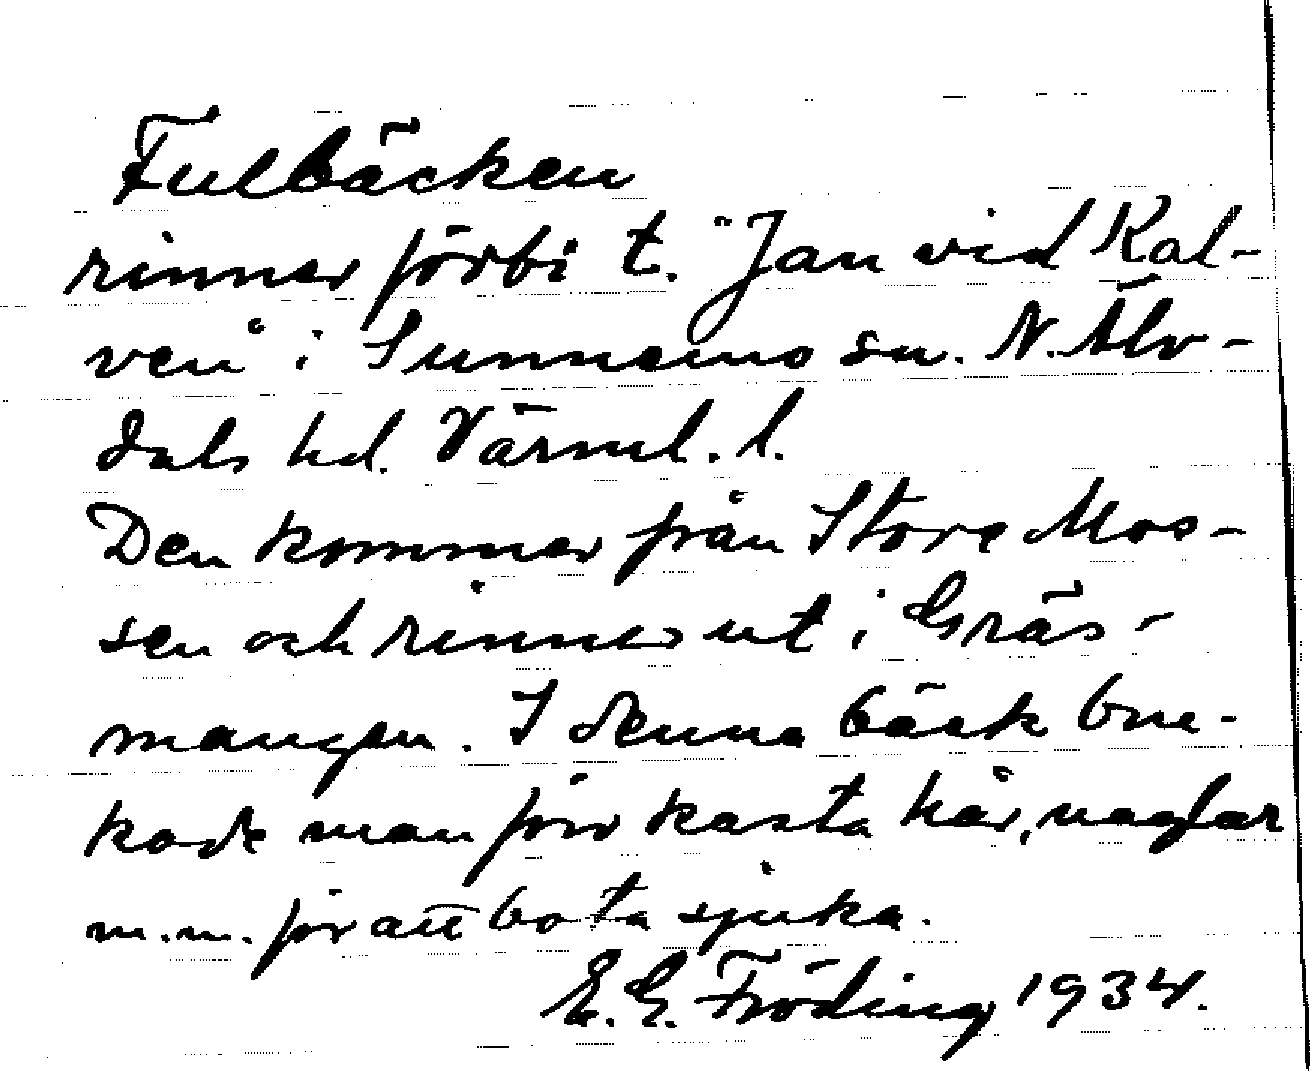 Fulbäcken
rinner förbi t. "Jan vid Kal-
ven" i Sunnemo sn. N. Älv-
dals hd. Värml. l.
Den kommer från Store Mos-
sen och rinner ut i Gräs-
mangen. I denna bäck bru-
kade man förr kasta hår, naglar
m.m. för att bota sjuka.
E. G. Fröding 1934.